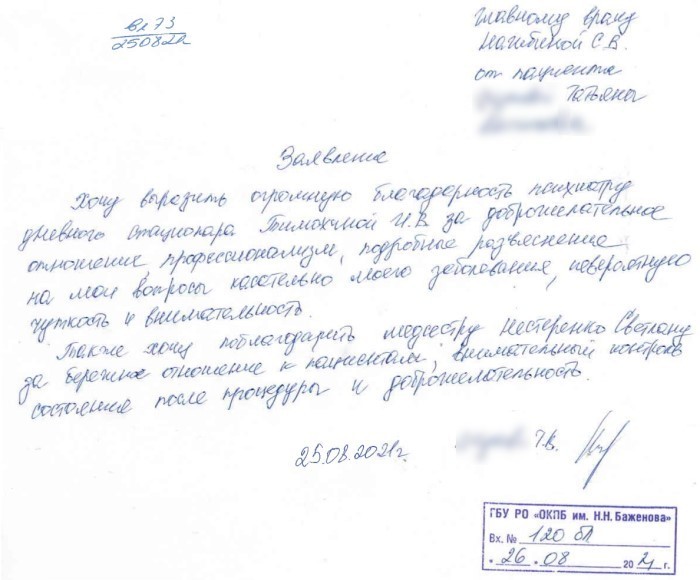 вх 73
250821
Главному врачу
Нагибиной С.В.
от пациента
Татьяны
Заявление
Хочу выразить огромную благодарность психиатру
дневного стационара Тимохиной И.В. за доброжелательное
отношение, профессионализм, подробные разъяснение
на мои вопросы касательно моего заболевания, невероятную
чуткость и внимательность.
Также хочу поблагодарить медсестру Нестеренко Светлану
за бережное отношение к пациентам, внимательный контроль
состояния после процедуры и доброжелательность.
25.08.2021г.
Т.В.
ГБУ РО «ОКПБ им. Н.Н. Баженова»
Вх. № 120 бл
26.08 2021 г.